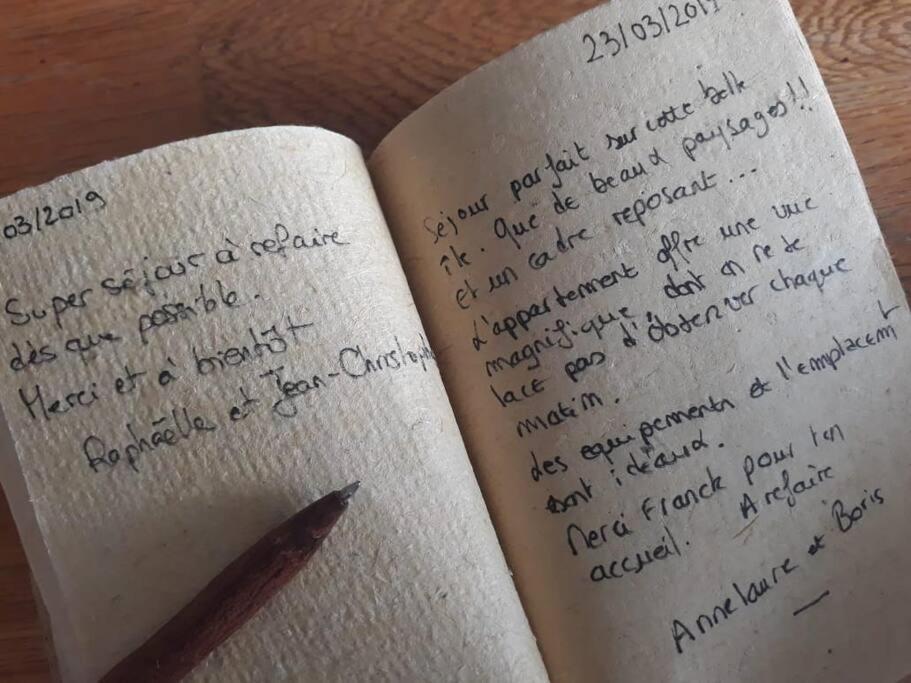 03/2019
Super séjour à refaire
dès que possible.
Merci et à bientôt
Raphaëlle et Jean-Christophe
23/03/2019
Séjour parfait sur cette belle
île. Que de beaux paysages!!
et un cadre reposant...
L'appartement offre une vue
magnifique dont on ne se
lace pas d'observer chaque
matin.
des equipements et l'emplacent
sont idéaux.
Merci Franck pour ton
accueil. A refaire
Annelaure et Boris